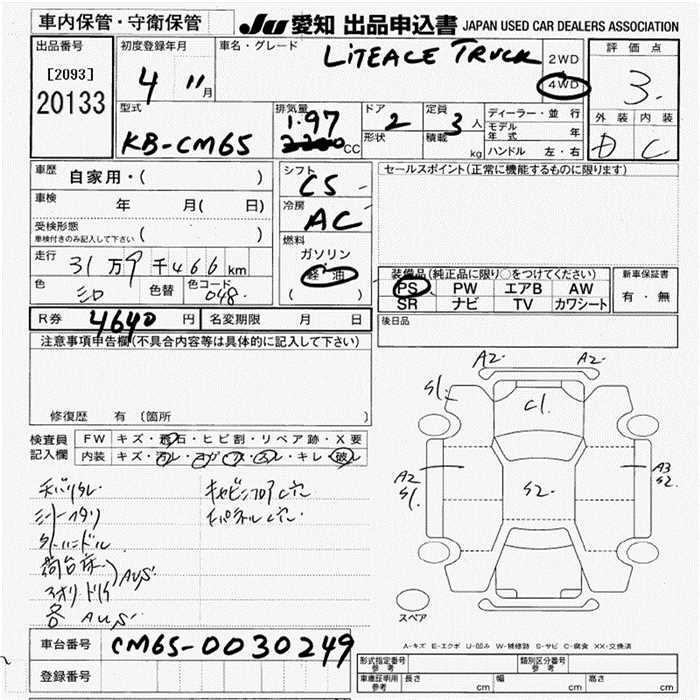 車内保管・守衛保管
JU 愛知 出品申込書 JAPAN USED CAR DEALERS ASSOCIATION
出品番号
[2093]
20133
初度登録年月
4 11月
車名・グレード
LITEACE TRUCK
2WD
4WD
評価点
3.
外装 内装
D C
型式
KB-CM65
排気量
1.97
2200CC
ドア
2
形状
定員
3人
積載
kg
ディーラー・並行
モデル年式 年
ハンドル 左・右
車歴
自家用・( )
車検
年 月( 日)
受検形態
車検付きのみ記入して下さい ( )
走行
31万9千466km
色
シロ
色替
色コード
048.
シフト
C5
冷房
AC
燃料
ガソリン
軽油
( )
セールスポイント(正常に機能するものに限ります)
装備品(純正品に限り○をつけてください)
PS PW エアB AW
SR ナビ TV カワシート
新車保証書
有・無
後日品
R券 4640円 名変期限 月 日
注意事項申告欄(不具合内容等は具体的に記入して下さい)
修復歴 有 (箇所 )
検査員
記入欄
FW キズ・飛石・ヒビ割・リペア跡・X要
内装 キズ・スレ・コゲ・穴・ヨレ・キレ・破レ
荷台床
各 AUS
A2. A2.
S1.
C1.
A2
S1.
S2.
A3
S2.
スペア
A-キズ E-エクボ U-凹み W-補修跡 S-サビ C-腐食 XX-交換済
車台番号 CM65-0030249
登録番号
形式指定番号
参考
類別区分番号
参考
車庫証明用
参考
長さ cm 幅 cm 高さ cm